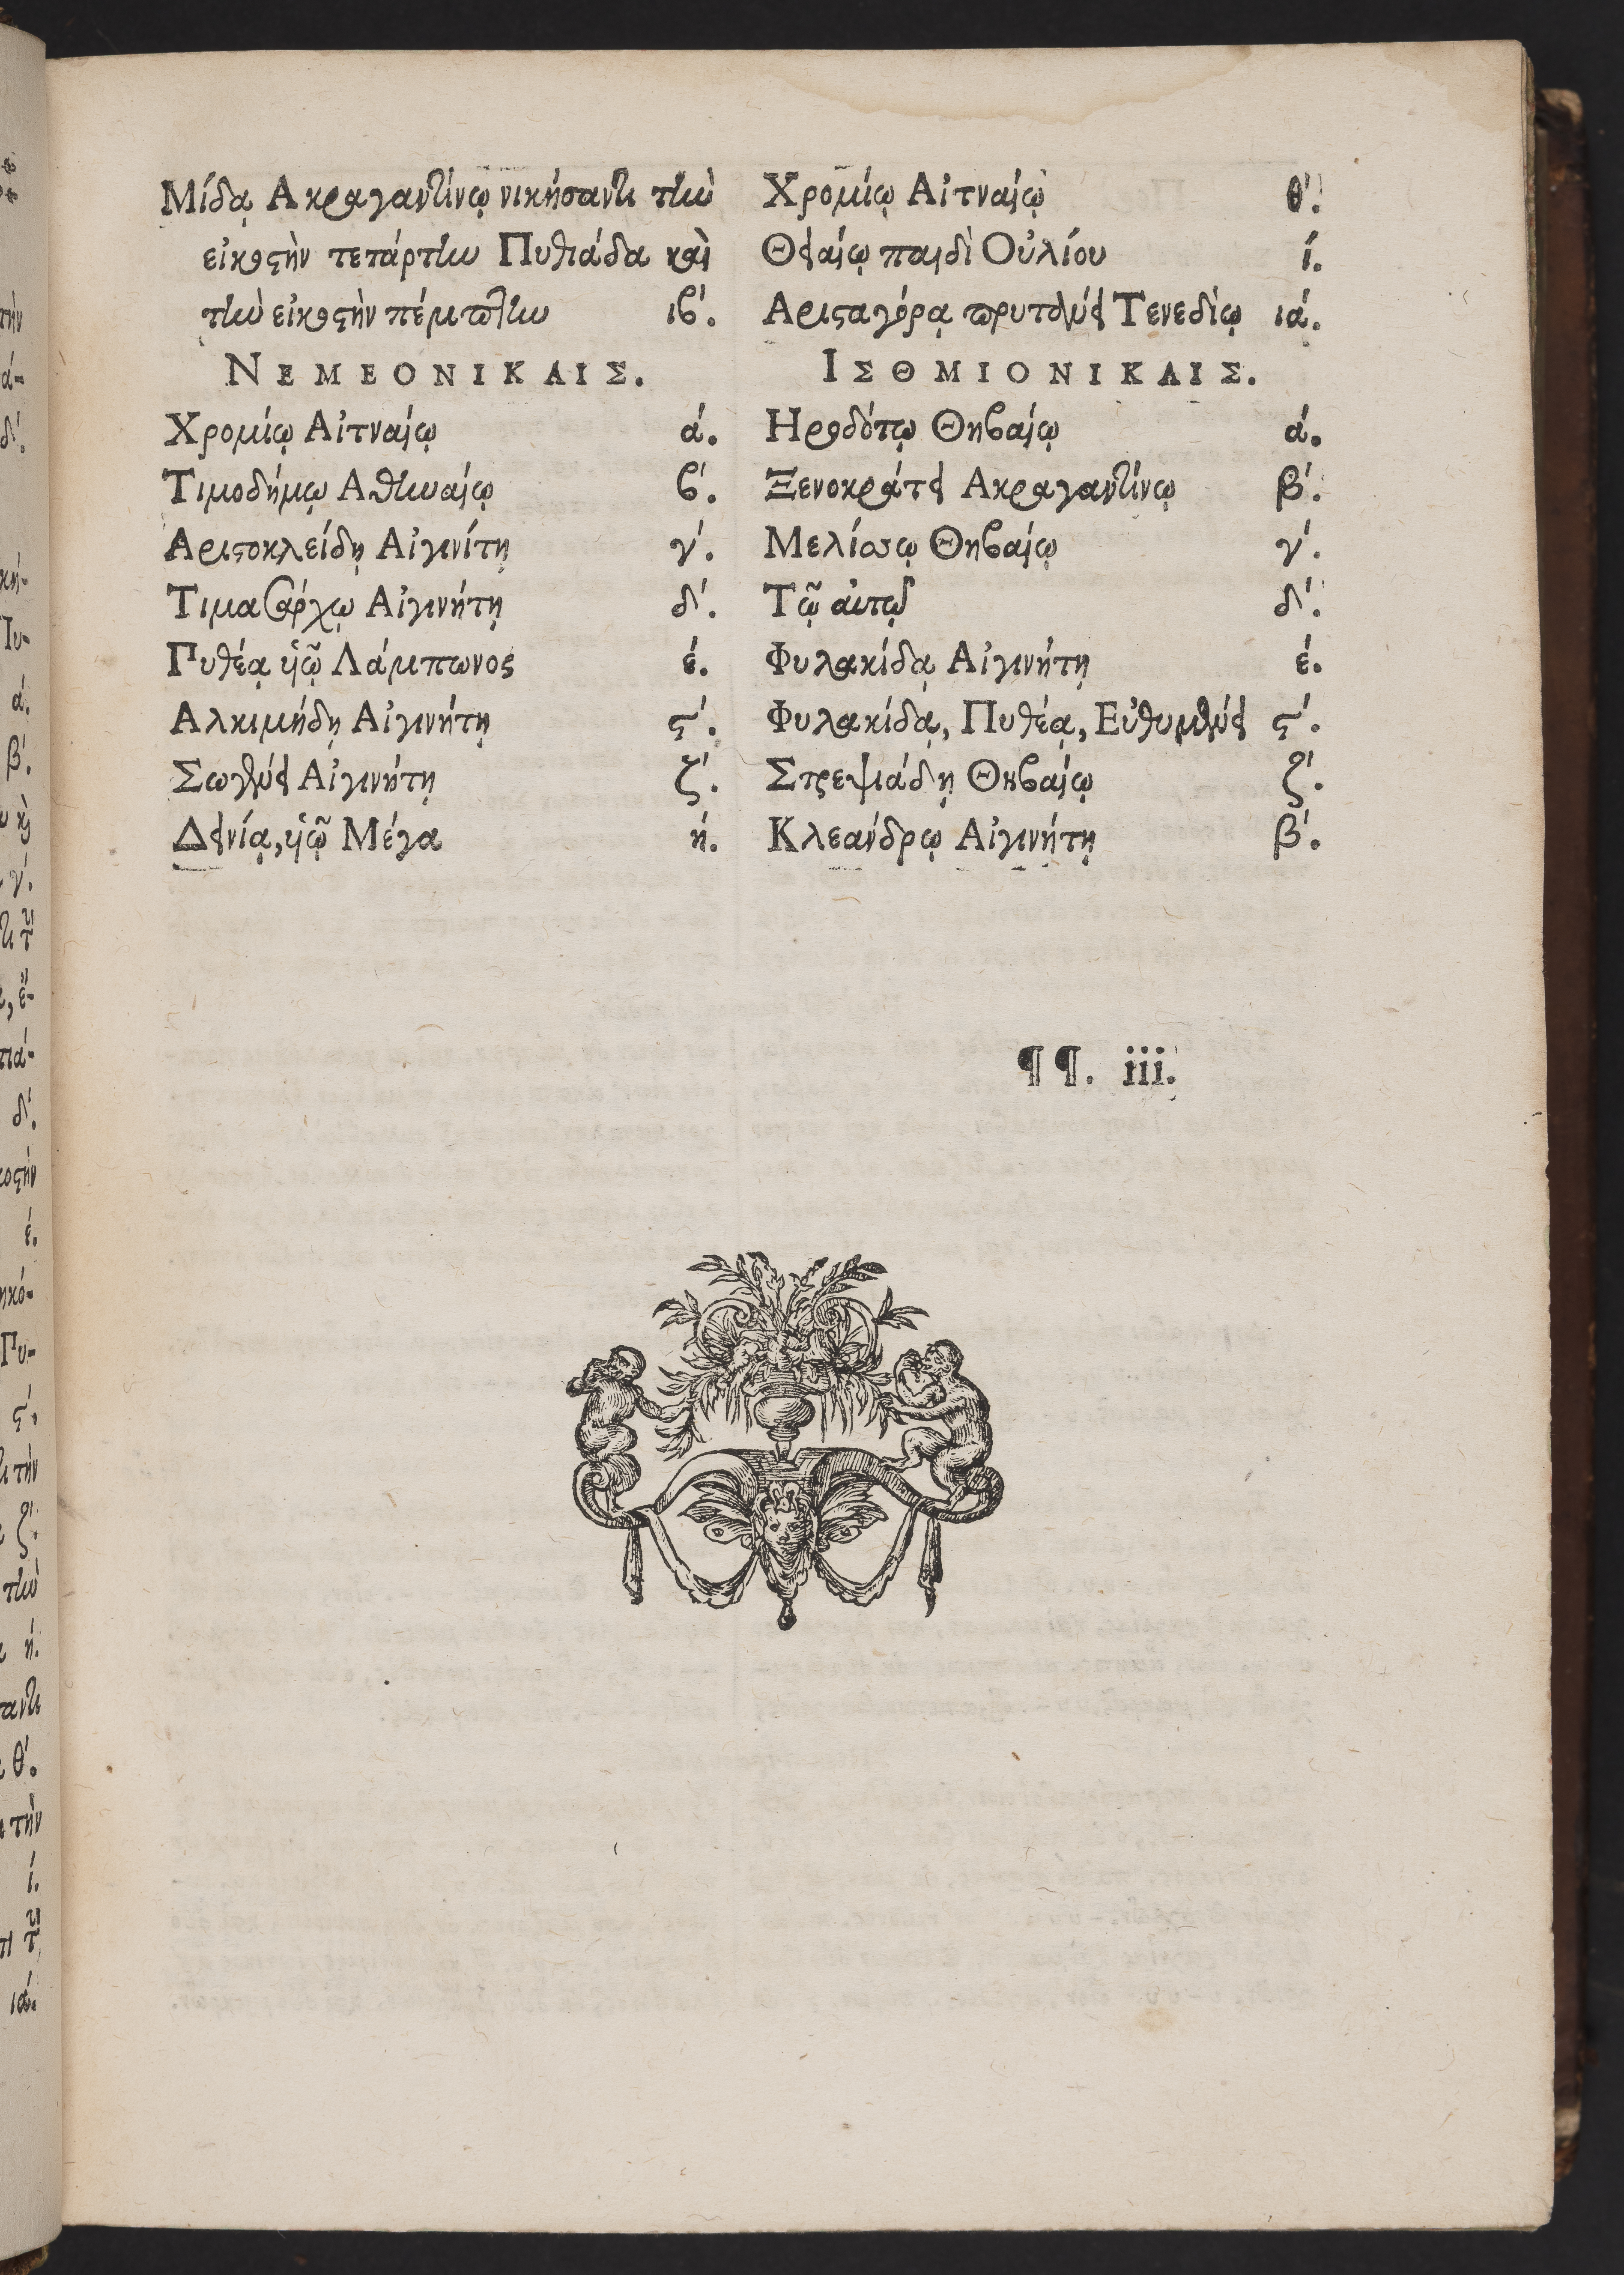 Μίδᾳ Ακραγαντίνῳ νικήσαντι τὴν
εἰκοστὴν τετάρτην Πυθιάδα καὶ
τὴν εἰκοστὴν πέμπτην ιϐ΄.
ΝΕΜΕΟΝΙΚΑΙΣ.
Χρομίῳ Αἰτναίῳ ά.
Τιμοδήμῳ Αθηναίῳ ϐ΄.
Αριστοκλείδῃ Αἰγινίτῃ γ΄.
Τιμασάρχῳ Αἰγινήτῃ δ΄.
Πυθέᾳ ὑῷ Λάμπωνος έ.
Αλκιμήδῃ Αἰγινήτῃ ϛ΄.
Σωγένει Αἰγινήτῃ ζ΄.
Δεινίᾳ, ὑῷ Μέγα ή.
Χρομίῳ Αἰτναίῳ θ΄.
Θειαίῳ παιδὶ Οὐλίου ί.
Αρισταγόρᾳ πρυτάνει Τενεδίῳ ιά.
ΙΣΘΜΙΟΝΙΚΑΙΣ.
Ηροδότῳ Θηϐαίῳ ά.
Ξενοκράτει Ακραγαντίνῳ β΄.
Μελίσσῳ Θηϐαίῳ γ΄.
Τῷ αὐτῷ δ΄.
Φυλακίδᾳ Αἰγινήτῃ έ.
Φυλακίδᾳ, Πυθέᾳ, Εὐθυμένει ϛ΄.
Στρεψιάδῃ Θηϐαίῳ ζ΄.
Κλεάνδρῳ Αἰγινήτῃ β΄.
¶¶. iii.